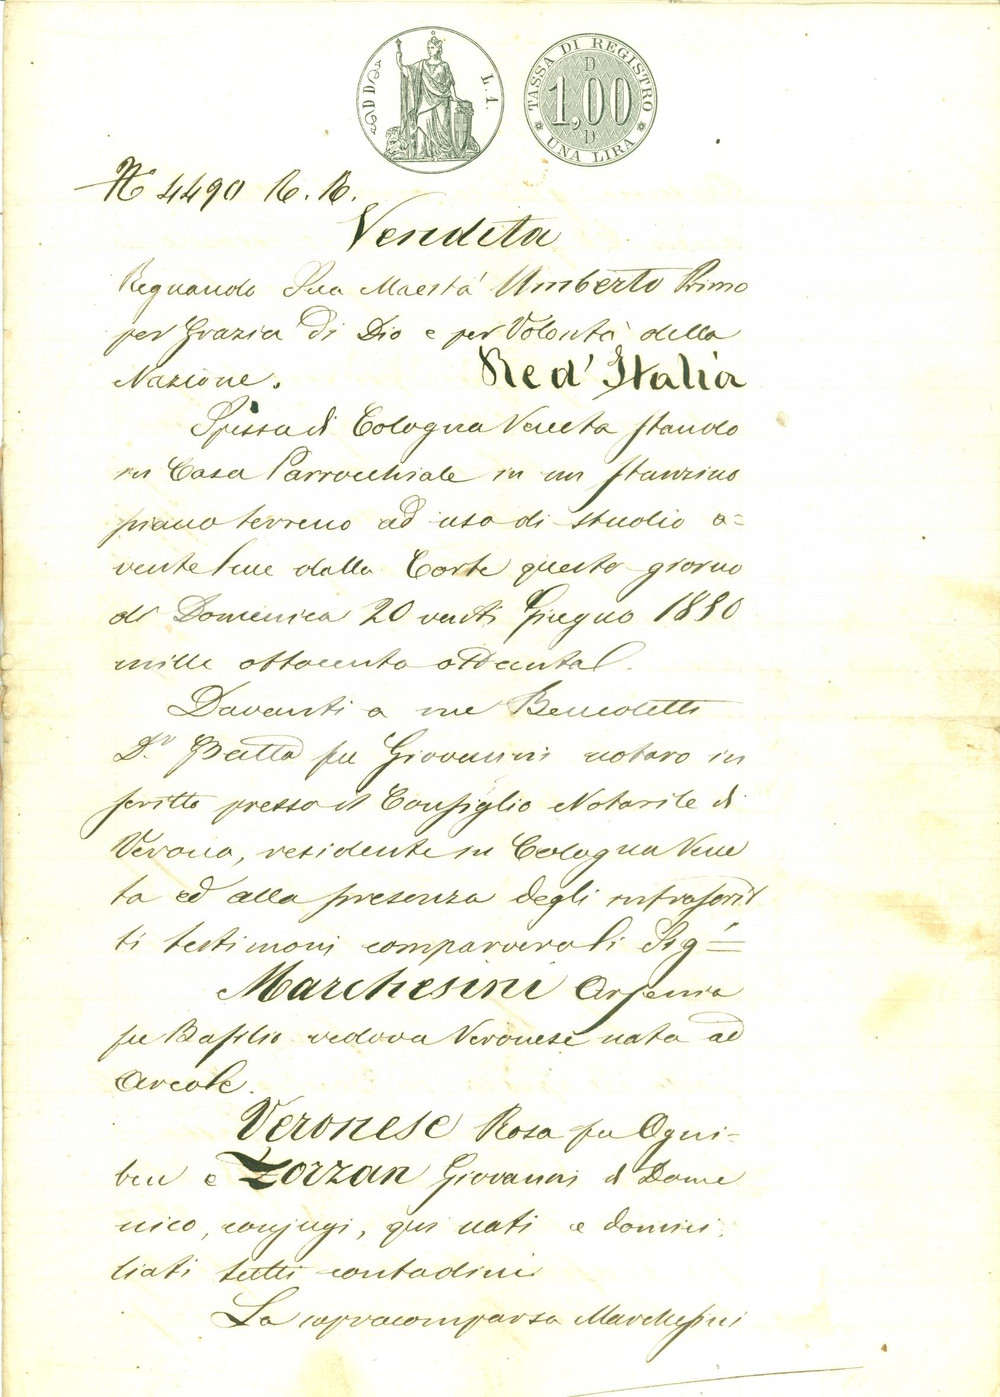 DD L. 1.
TASSA DI REGISTRO D 1,00 D UNA LIRA
N 4490 R. R.
Vendita
Regnando Sua Maestà Umberto Primo
per Grazia di Dio e per Volontà della
Nazione. Re d' Italia
Spessa di Cologna Veneta stando
in Casa Parrocchiale in un stanzino
piano terreno ad uso di studio a=
vente luce dalla Corte questo giorno
di Domenica 20 venti Giugno 1880
mille ottocento ottanta.
Davanti a me Benedetti
Dr. Batta fu Giovanni notaro in
scritto presso il Consiglio Notarile di
Verona, residente in Cologna Vene
ta ed alla presenza degli infrascrit
ti testimoni comparvero li Sig.i =
Marchesini Arsenia
fu Basilio vedova Veronese nata ad
Arcole.
Veronese Rosa fu Ogni-
ben e Zorzan Giovanni di Dome
nico, conjugi, qui nati e domici
liati tutti contadini
La sopracomparsa Marchesini